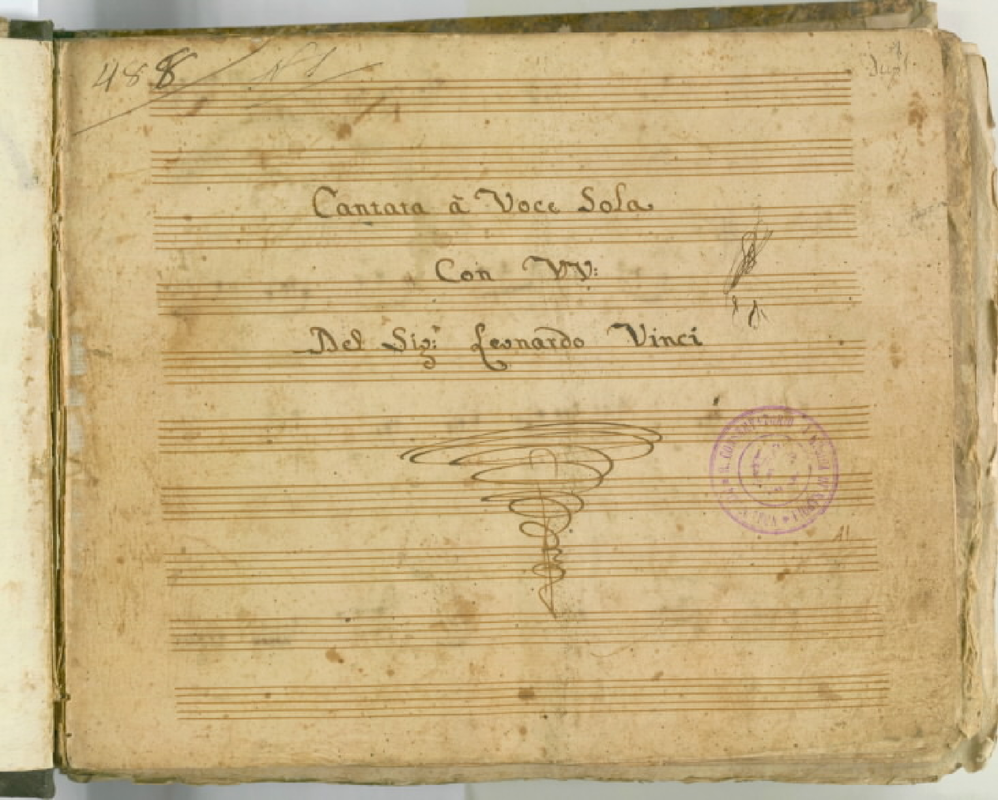 488 N 1
Cantata à Voce Sola
Con VV:
Del Sig:r Leonardo Vinci